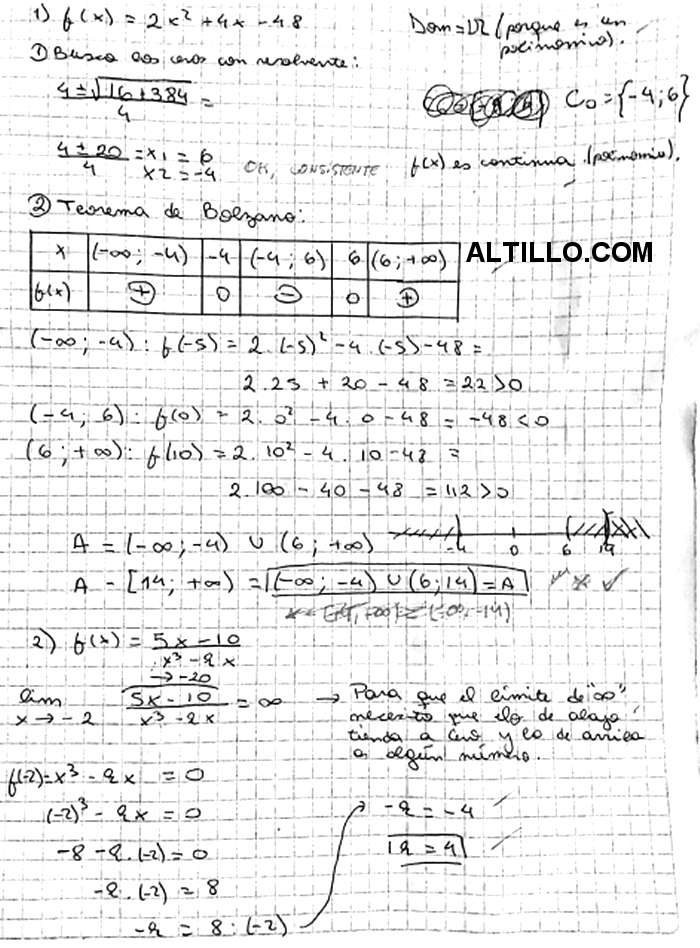 1) f(x) = 2x² + 4x - 48
Dom = IR (porque es un
polinomico).
① Busco los ceros con resolvente:
4 ± √16 + 384 =
4
C₀ = {-4; 6}
4 ± 20 = x1 = 6
4 x2 = -4
OK, CONSISTENTE
f(x) es continua (polinomio).
② Teorema de Bolzano:
x (-∞; -4) -4 (-4; 6) 6 (6; +∞)
f(x) + 0 - 0 +
ALTILLO.COM
(-∞; -4): f(-5) = 2.(-5)² - 4.(-5) - 48 =
2.25 + 20 - 48 = 22 > 0
(-4; 6): f(0) = 2.0² - 4.0 - 48 = -48 < 0
(6; +∞): f(10) = 2.10² - 4.10 - 48 =
2.100 - 40 - 48 = 112 > 0
A = (-∞; -4) ∪ (6; +∞)
-4 0 6 14
A - [14; +∞) = (-∞; -4) ∪ (6; 14) = A
2) f(x) = 5x - 10
x³ - a x
→ -20
lim 5x - 10 = ∞
x → -2 x³ - ax
→ Para que el límite de "∞"
necesito que lo de abajo
tienda a cero y lo de arriba
a algún número.
f(-2) = x³ - ax = 0
(-2)³ - ax = 0
-8 - a.(-2) = 0
-a.(-2) = 8
-a = 8 : (-2)
-a = -4
a = 4